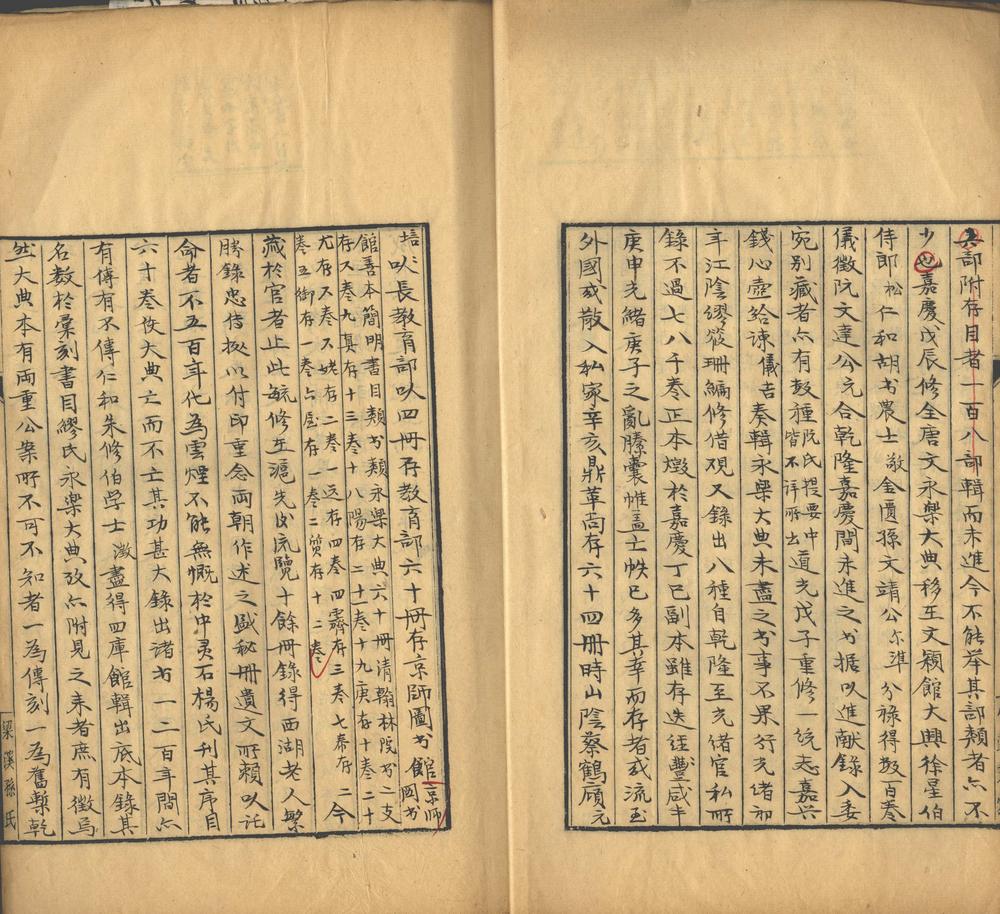 其部附存目者一百八部輯而未進今不能举其部類者亦不
少也嘉慶戊辰修全唐文永樂大典移至文穎館大興徐星伯
侍郎松仁和胡書農士敬金匱孫文靖公尔準分祿得数百巻
儀徵阮文達公元合乾隆嘉慶間未進之书据以進献錄入委
宛别藏者亦有数種阮氏提要中皆不详所出道光戊子重修一统志嘉興
錢心壺给谏儀吉奏輯永樂大典未盡之书事不果行光绪初
年江陰缪筱珊編修借观又錄出八種自乾隆至光绪官私所
錄不過七八千巻正本燬於嘉慶丁巳副本雖存迭经豐咸丰
庚申光緒庚子之亂縢囊帷盖士帙已多其幸而存者或流
外國或散入私家辛亥鼎革尚存六十四册時山陰蔡鶴廎元
培以長教育部以四册存教育部六十册存京師圖书館京師圖书
館善本簡明書目類书類永樂大典六十册清翰林院书二支
存又巻九真存十三巻十八陽存二十一巻十九庚存十巻二十
尤存又巻又姥存二巻一远存四巻四霽存三巻七泰存二
巻五御存一巻六屋存一巻二質存十二巻今
藏於官者止此毓修至滬先後流覽十餘册錄得西湖老人繁
勝錄忠传拟以付印重念两朝作述之盛秘册遺文所賴以託
命者不五百年代為雲煙不能無慨於中灵石楊氏刊其序目
六十巻佚大典亡而不亡其功甚大錄出诸书一二百年間亦
有傳有不傳仁和朱修伯学士澂盡得四庫館輯出底本錄其
名数於彙刻書目繆氏永樂大典攷亦附見之来者庶有徵焉
然大典本有两重公案所不可不知者一為傳刻一為舊槧乾
梁溪孫氏